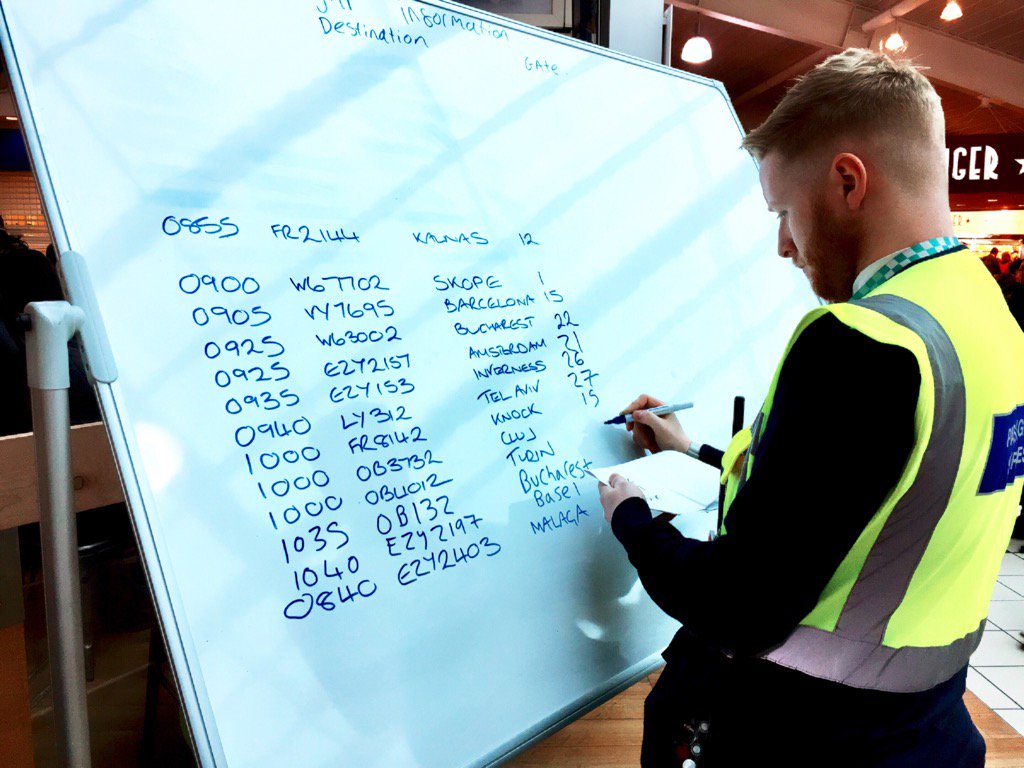 Information
Destination
GATE
0855 FR2144 KAUNAS 12
0900 W67702 SKOPE 1
0905 VY7695 BARCELONA 15
0925 W63002 BUCHAREST 22
0925 EZY2157 AMSTERDAM 21
0935 EZY153 INVERNESS 26
0940 LY312 TEL AVIV 27
1000 FR8142 KNOCK 15
1000 OB3732 CLUJ
1000 OB4012 TURIN
1035 OB132 Bucharest
1040 EZY2197 Basel
0840 EZY2403 MALAGA
GER